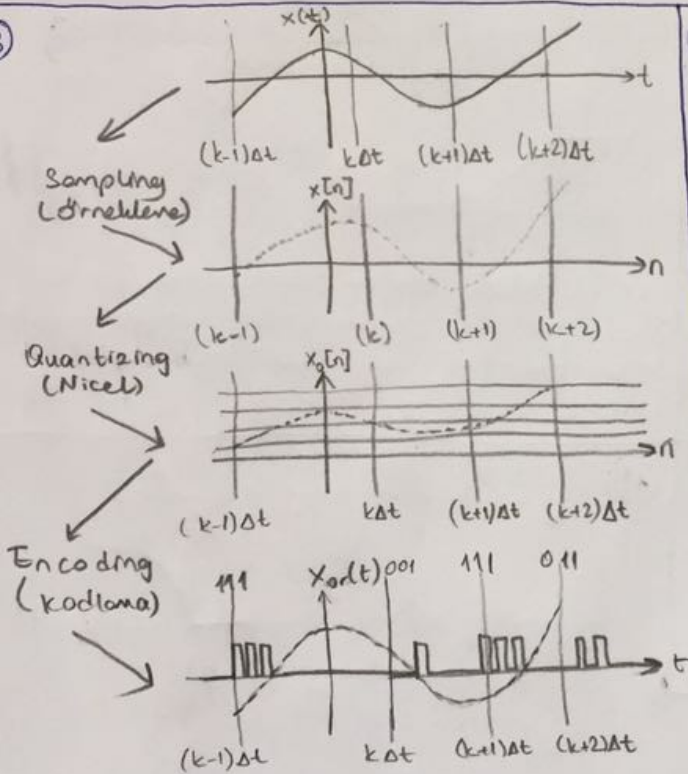 x(t)
t
(k-1)Δt kΔt (k+1)Δt (k+2)Δt
Sampling
(örnekleme)
x[n]
n
(k-1) (k) (k+1) (k+2)
Quantizing
(Nicel)
xq[n]
n
(k-1)Δt kΔt (k+1)Δt (k+2)Δt
Encoding
(kodlama)
111 001 111 011
t
(k-1)Δt kΔt (k+1)Δt (k+2)Δt